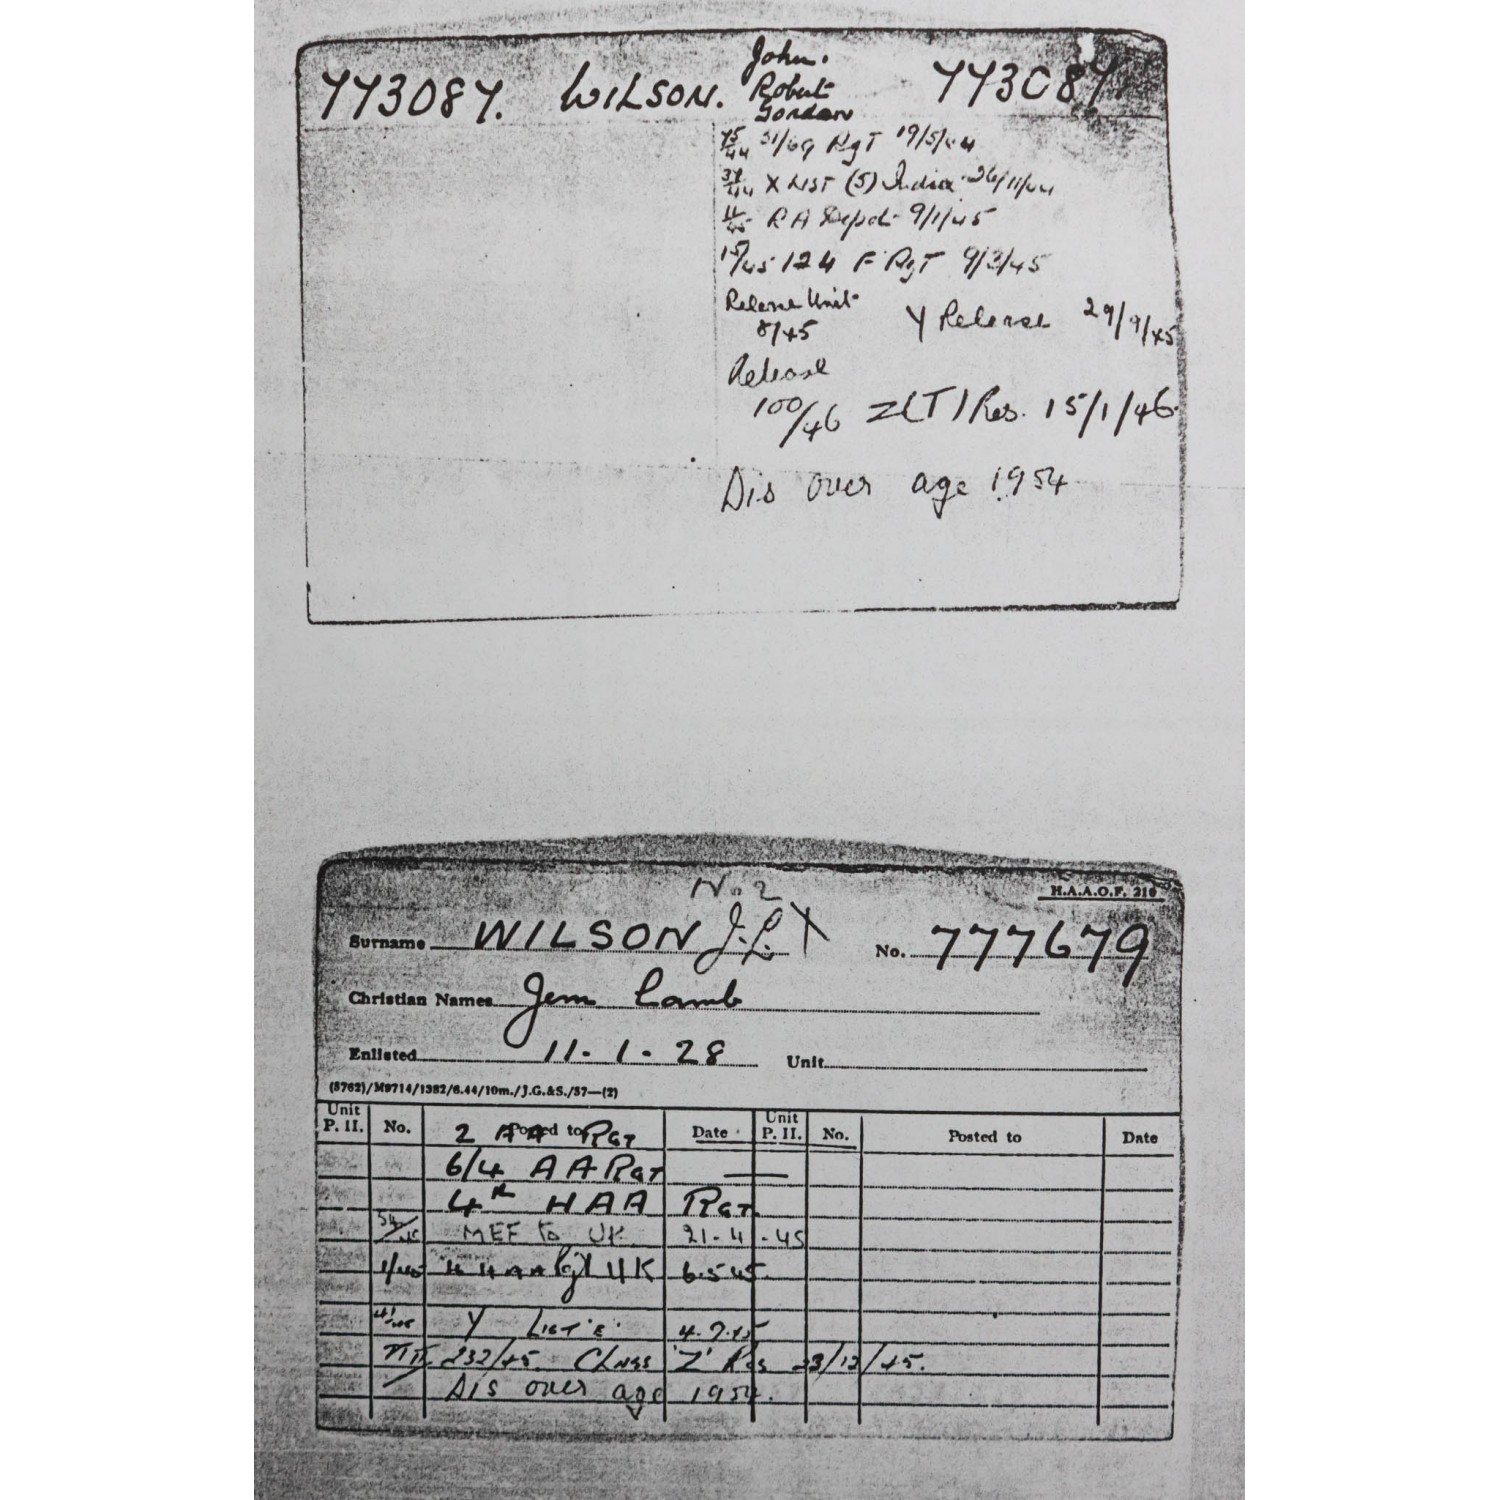 773087. WILSON. John. Robert Gordon 773087
75/44 51/69 RgT 19/5/44
37/44 X LIST (5) India 26/11/44
11/45 RA Depot 9/1/45
15/45 124 F RgT 9/3/45
Release Unit 8/45 Y Release 29/9/45
Release
100/46 Z(T) Res. 15/1/46.
Dis over age 1954
No. 2
H.A.A.O.F. 210
Surname WILSON J.L. X No. 777679
Christian Names Jem Lamb
Enlisted 11-1-28 Unit
(8762)/M9714/1382/6.44/10m./J.G.&S./37—(2)
Unit P. II. No. Posted to Date Unit P. II. No. Posted to Date
2 AA RGT
6/4 AA RGT —
4th HAA RGT
54/45 MEF to UK 21-4-45
1/45 4 HAA Rgt UK 6.5.45.
41/45 Y LIST 'E' 4.7.45
232/45. Class 'Z' Res 23/12/45.
Dis over age 1954.